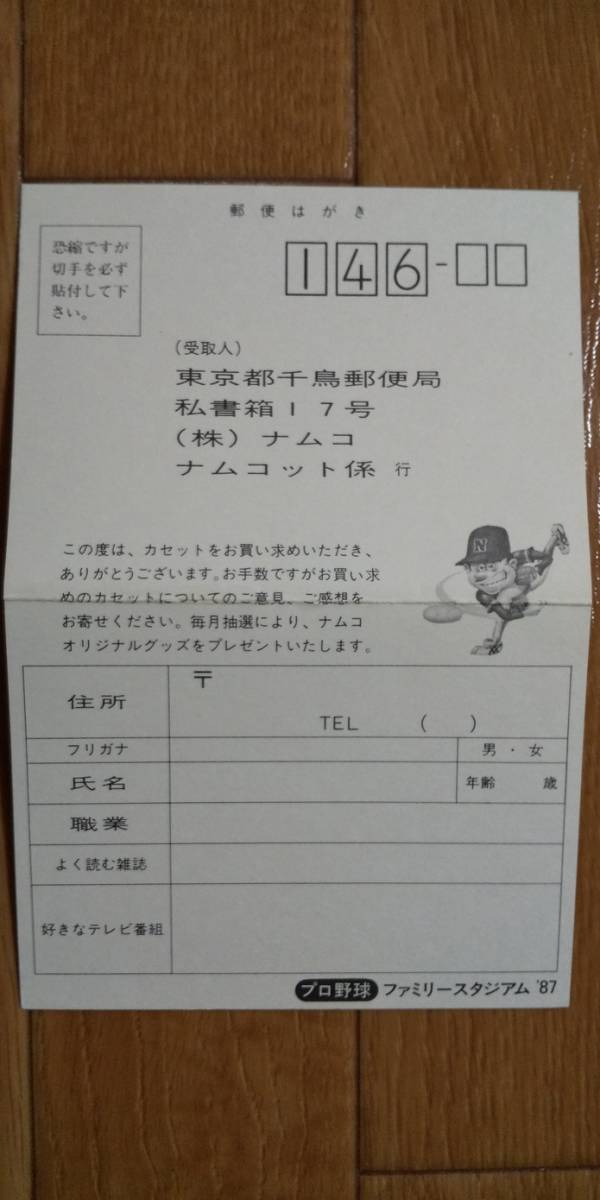 郵便はがき
恐縮ですが
切手を必ず
貼付して下
さい。
146-
(受取人)
東京都千鳥郵便局
私書箱17号
(株)ナムコ
ナムコット係 行
N
この度は、カセットをお買い求めいただき、
ありがとうございます。お手数ですがお買い求
めのカセットについてのご意見、ご感想を
お寄せください。毎月抽選により、ナムコ
オリジナルグッズをプレゼントいたします。
住所
〒
TEL ( )
フリガナ
男・女
氏名
年齢 歳
職業
よく読む雑誌
好きなテレビ番組
プロ野球 ファミリースタジアム '87